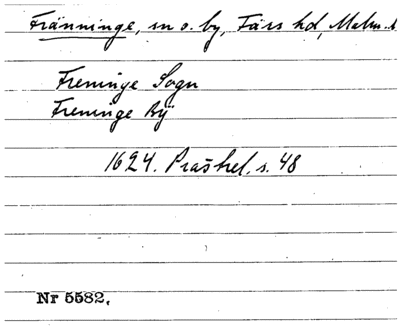 Fränninge, sn o. by, Färs hd, Malm. l.
Freninge Sogn
Freninge By
1624. s. 48
Nr 5582,